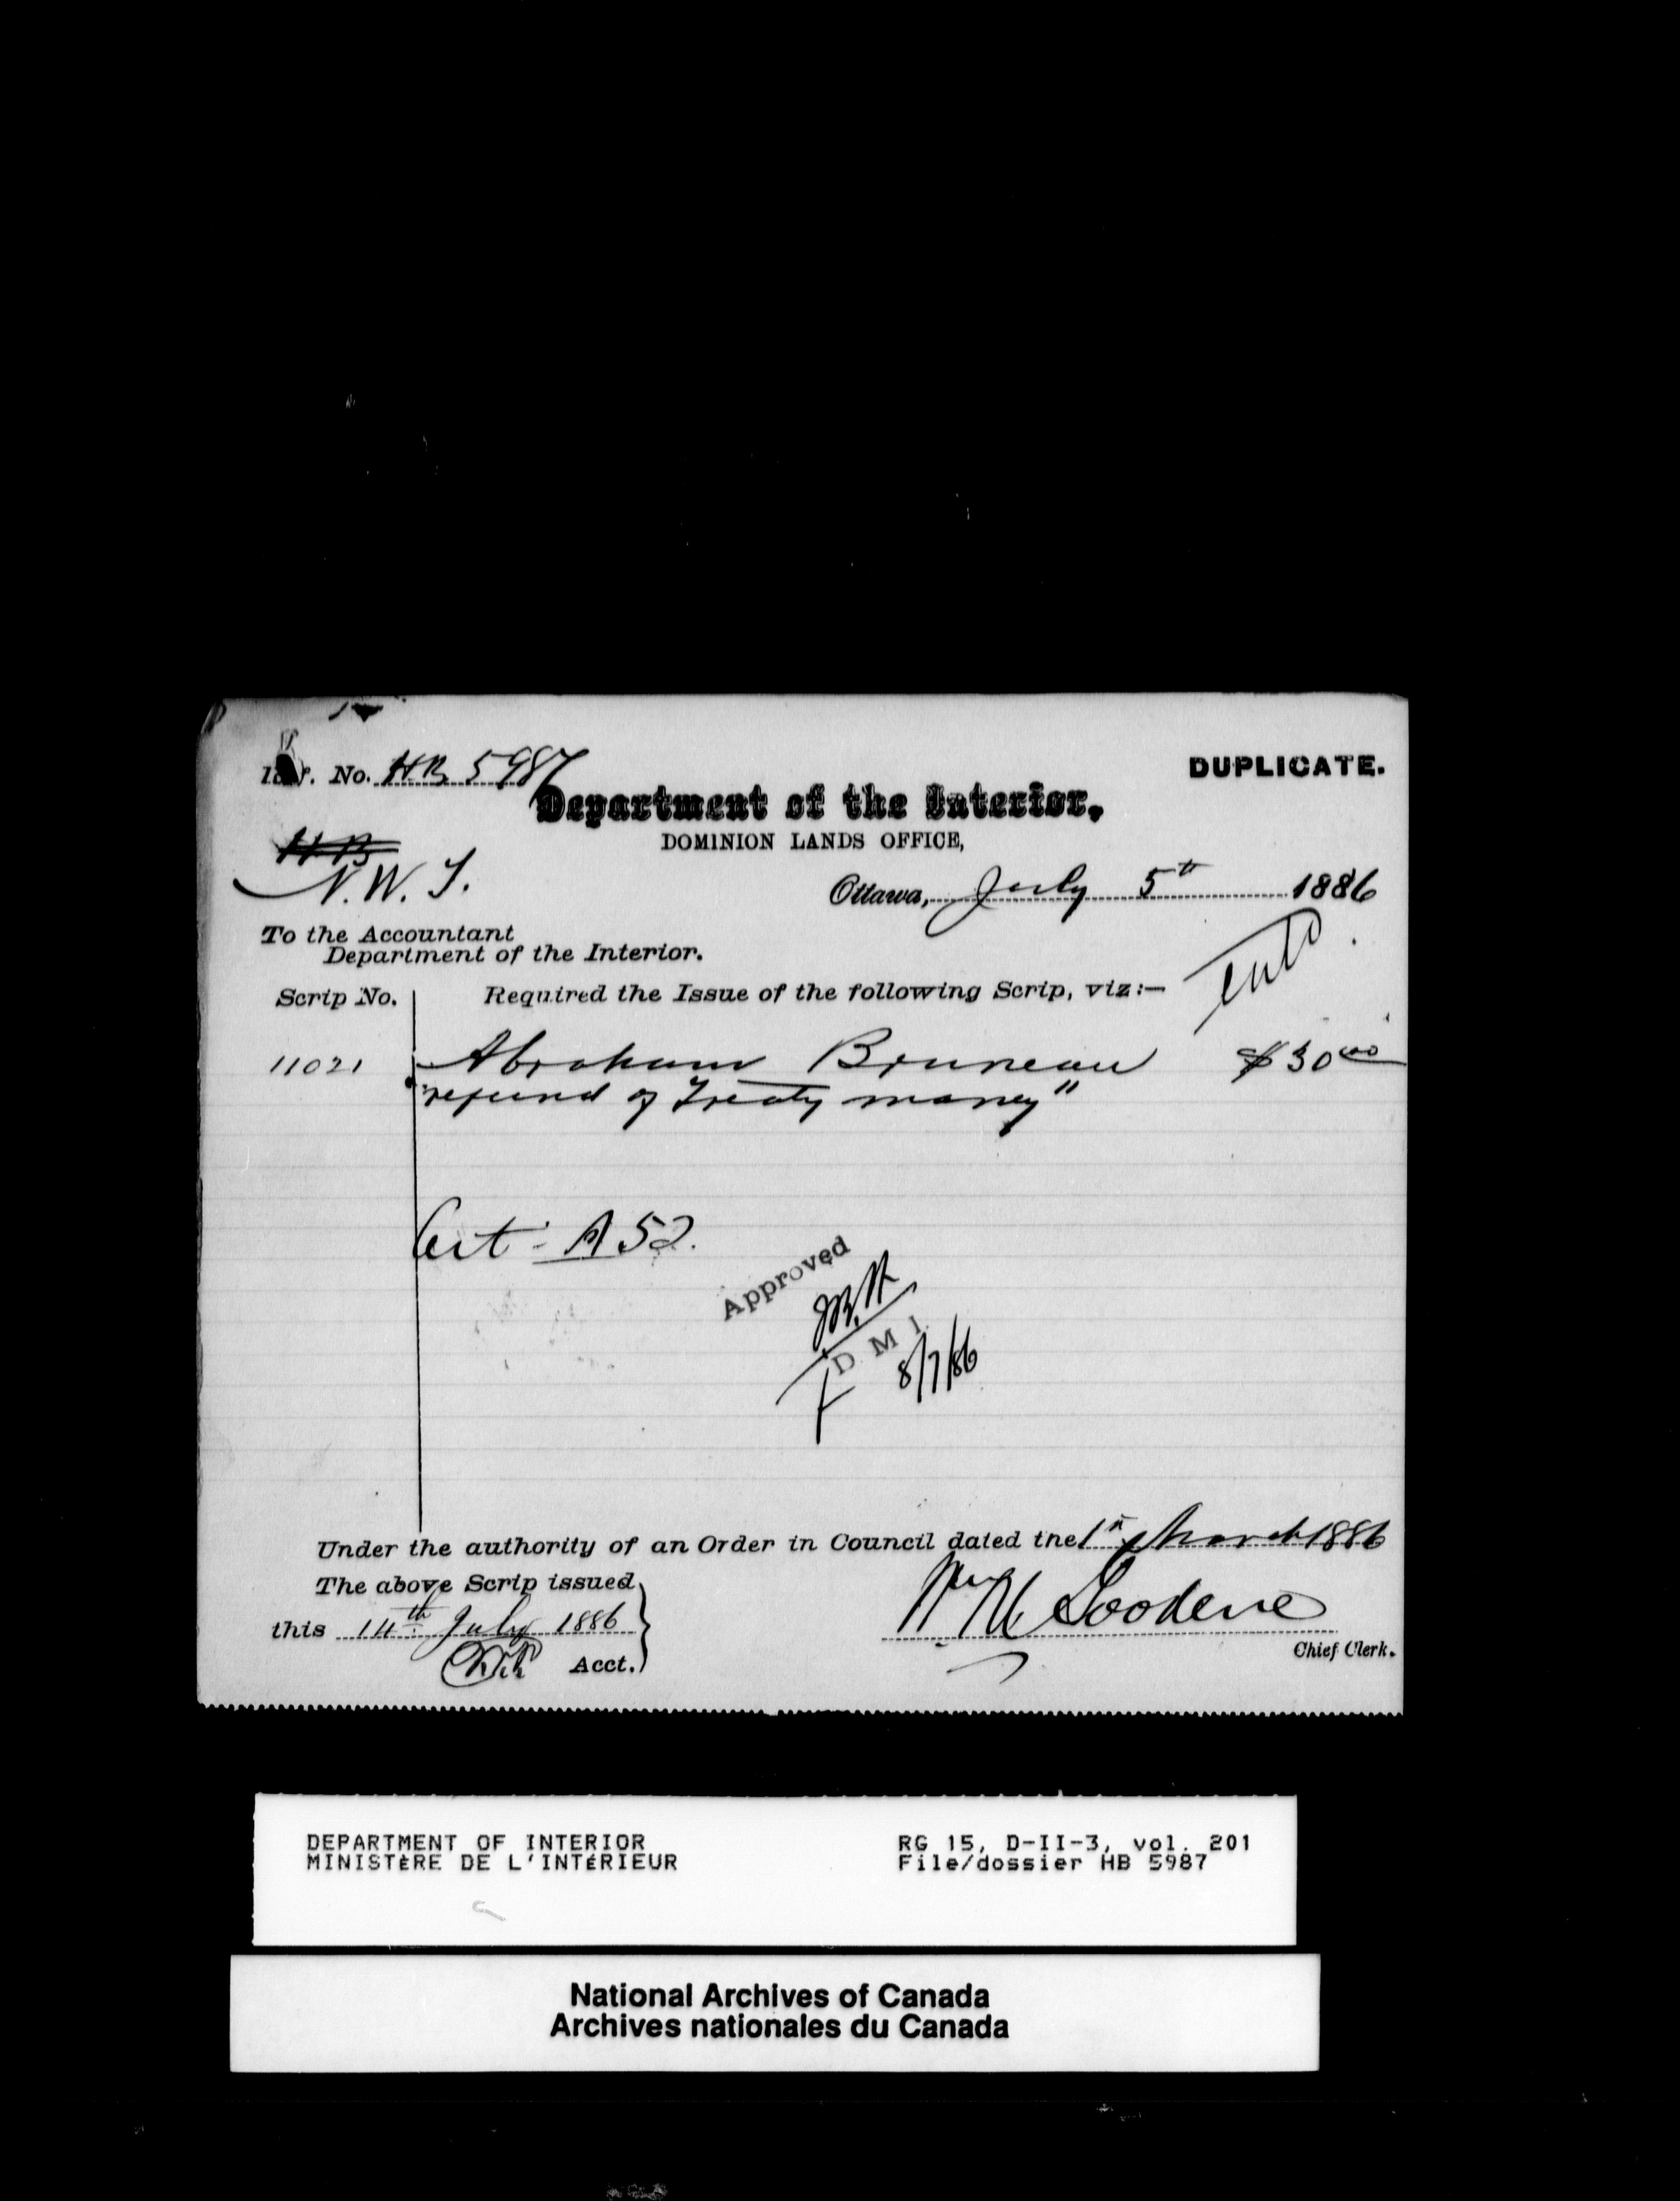 No. HB 5987
DUPLICATE.
Department of the Interior,
DOMINION LANDS OFFICE,
HB
N.W.T.
Ottawa, July 5th 1886
To the Accountant
Department of the Interior.
Scrip No. Required the Issue of the following Scrip, viz:—
11021 Abraham Bruneau $30 00
"refund of Treaty money"
Cert. A 52.
Approved
D M I
8/7/86
Under the authority of an Order in Council dated the 1st March 1886
The above Scrip issued
this 14th July 1886
Acct.
Chief Clerk.
DEPARTMENT OF INTERIOR
MINISTÈRE DE L'INTÉRIEUR
RG 15, D-II-3, vol. 201
File/dossier HB 5987
National Archives of Canada
Archives nationales du Canada